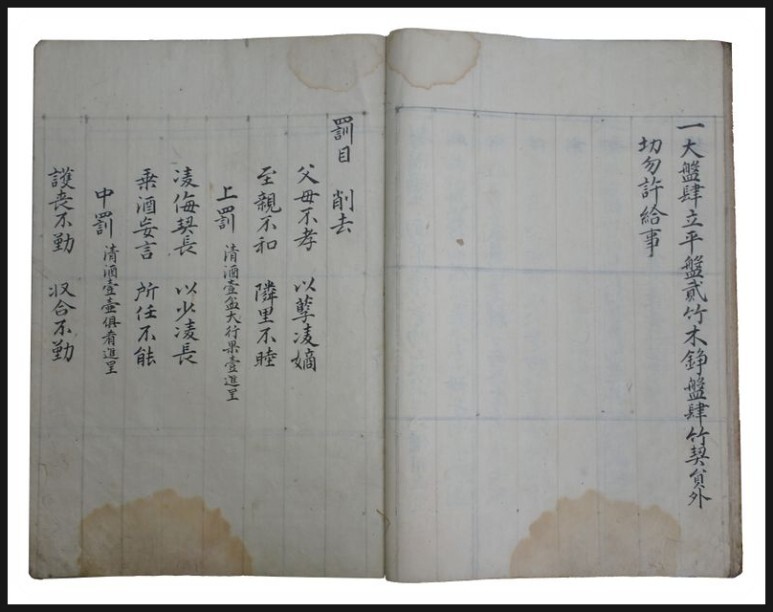 一大盤肆立平盤貳竹木錚盤肆竹契員外
切勿許給事
罰目 削去
父母不孝 以孽凌嫡
至親不和 隣里不睦
上罰 清酒壹盆大行果壹進呈
凌侮契長 以少凌長
乗酒妄言 所任不能
中罰 清酒壹壺俱肴進呈
護喪不勤 収合不勤